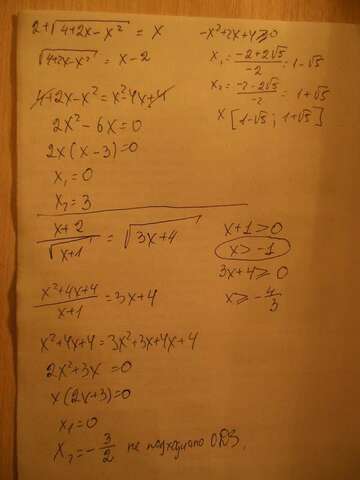 2+√(4+2x-x²) = x
√(4+2x-x²) = x-2
4+2x-x² = x²-4x+4
2x²-6x=0
2x(x-3)=0
x₁=0
x₂=3
-x²+2x+4≥0
x₁=(-2+2√5)/(-2) = 1-√5
x₂=(-2-2√5)/(-2) = 1+√5
x [1-√5; 1+√5]
(x+2)/√(x+1) = √(3x+4)
(x²+4x+4)/(x+1) = 3x+4
x²+4x+4=3x²+3x+4x+4
2x²+3x=0
x(2x+3)=0
x₁=0
x₂=-3/2 не подходит по ОДЗ.
x+1>0
x>-1
3x+4≥0
x≥-4/3